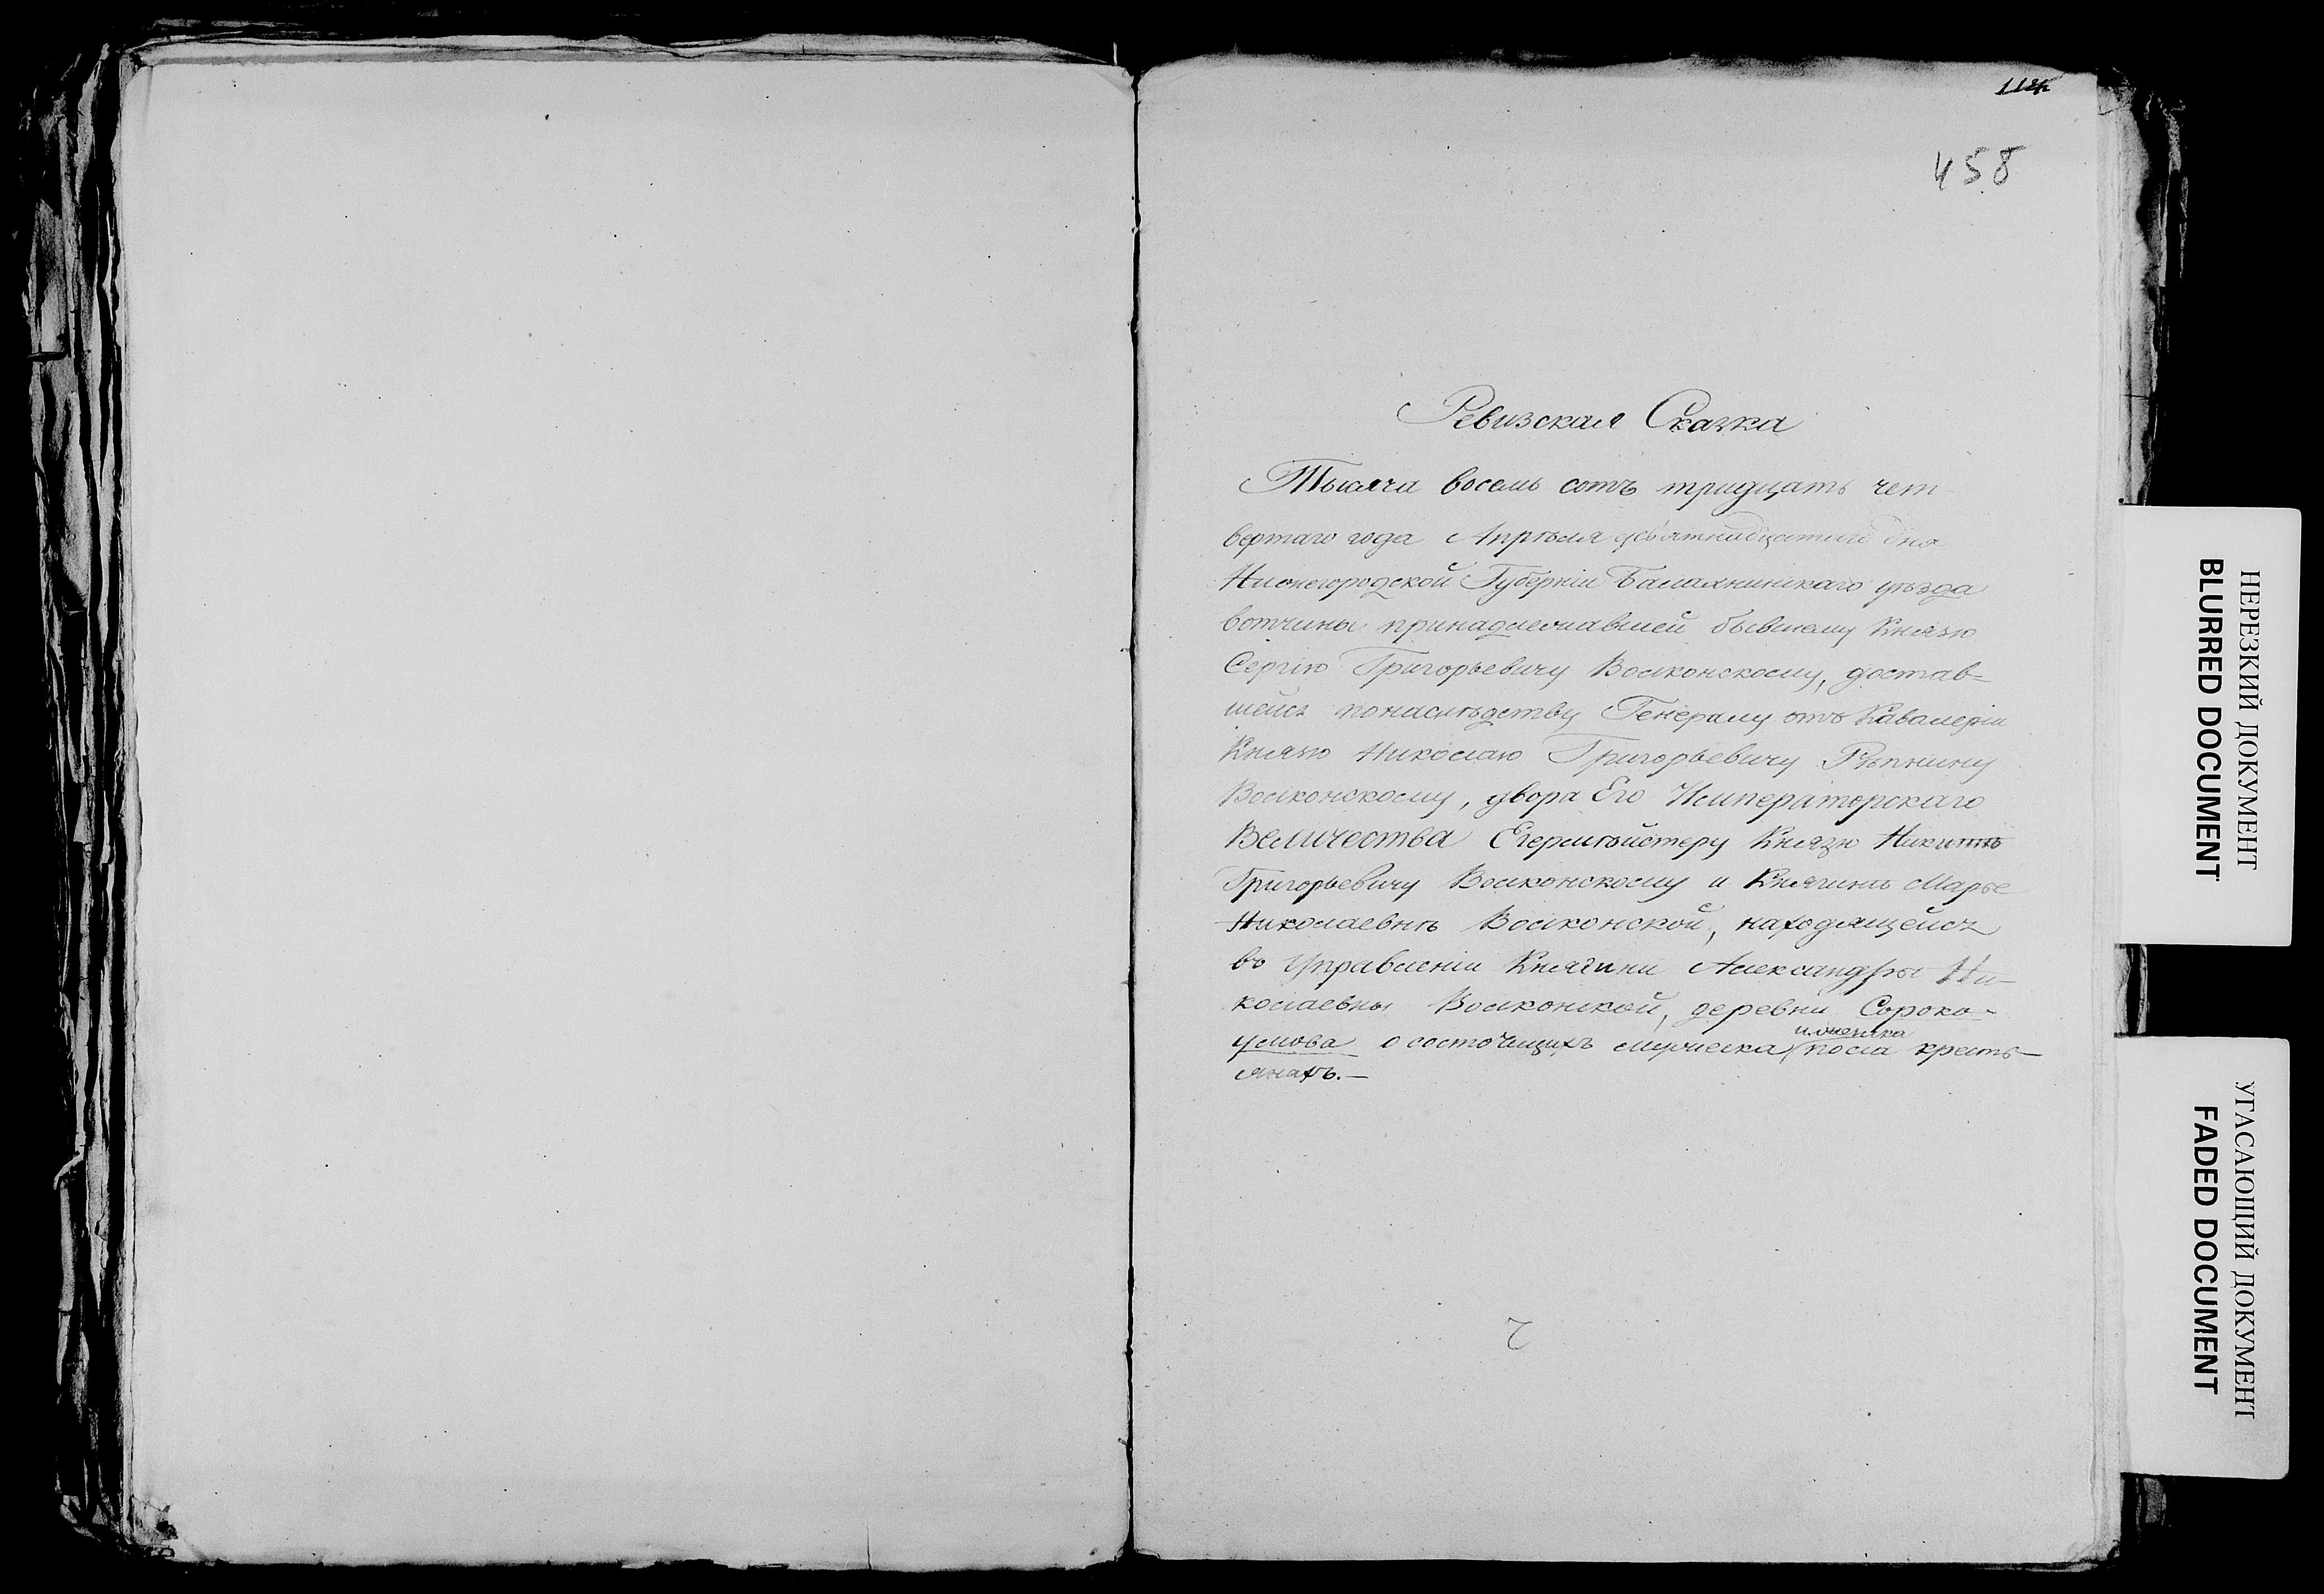 112
458
Ревизская Сказка
Тысяча восемь сотъ тридцать чет
вертаго года Апрѣля девятнадцатаго дня
Нижегородской Губерніи Балахнинскаго уѣзда
вотчины принадлежавшей бывшему Князю
Сергію Григорьевичу Волконскому, достав-
шейся понаслѣдству Генералу отъ Кавалеріи
Князю Николаю Григорьевичу Рѣпнину
Волконскому, двора Его Императорскаго
Величества Егермѣйстеру Князю Никитѣ
Григорьевичу Волконскому и Княгинѣ Марье
Николаевнѣ Волконской, находящейся
въ Управленіи Княгини Александры Ни-
колаевны Волконской, деревни Сороко-
умова о состоящихъ мужеска, иженска пола кресть-
янахъ.-
НЕРЕЗКИЙ ДОКУМЕНТ
BLURRED DOCUMENT
УГАСАЮЩИЙ ДОКУМЕНТ
FADED DOCUMENT